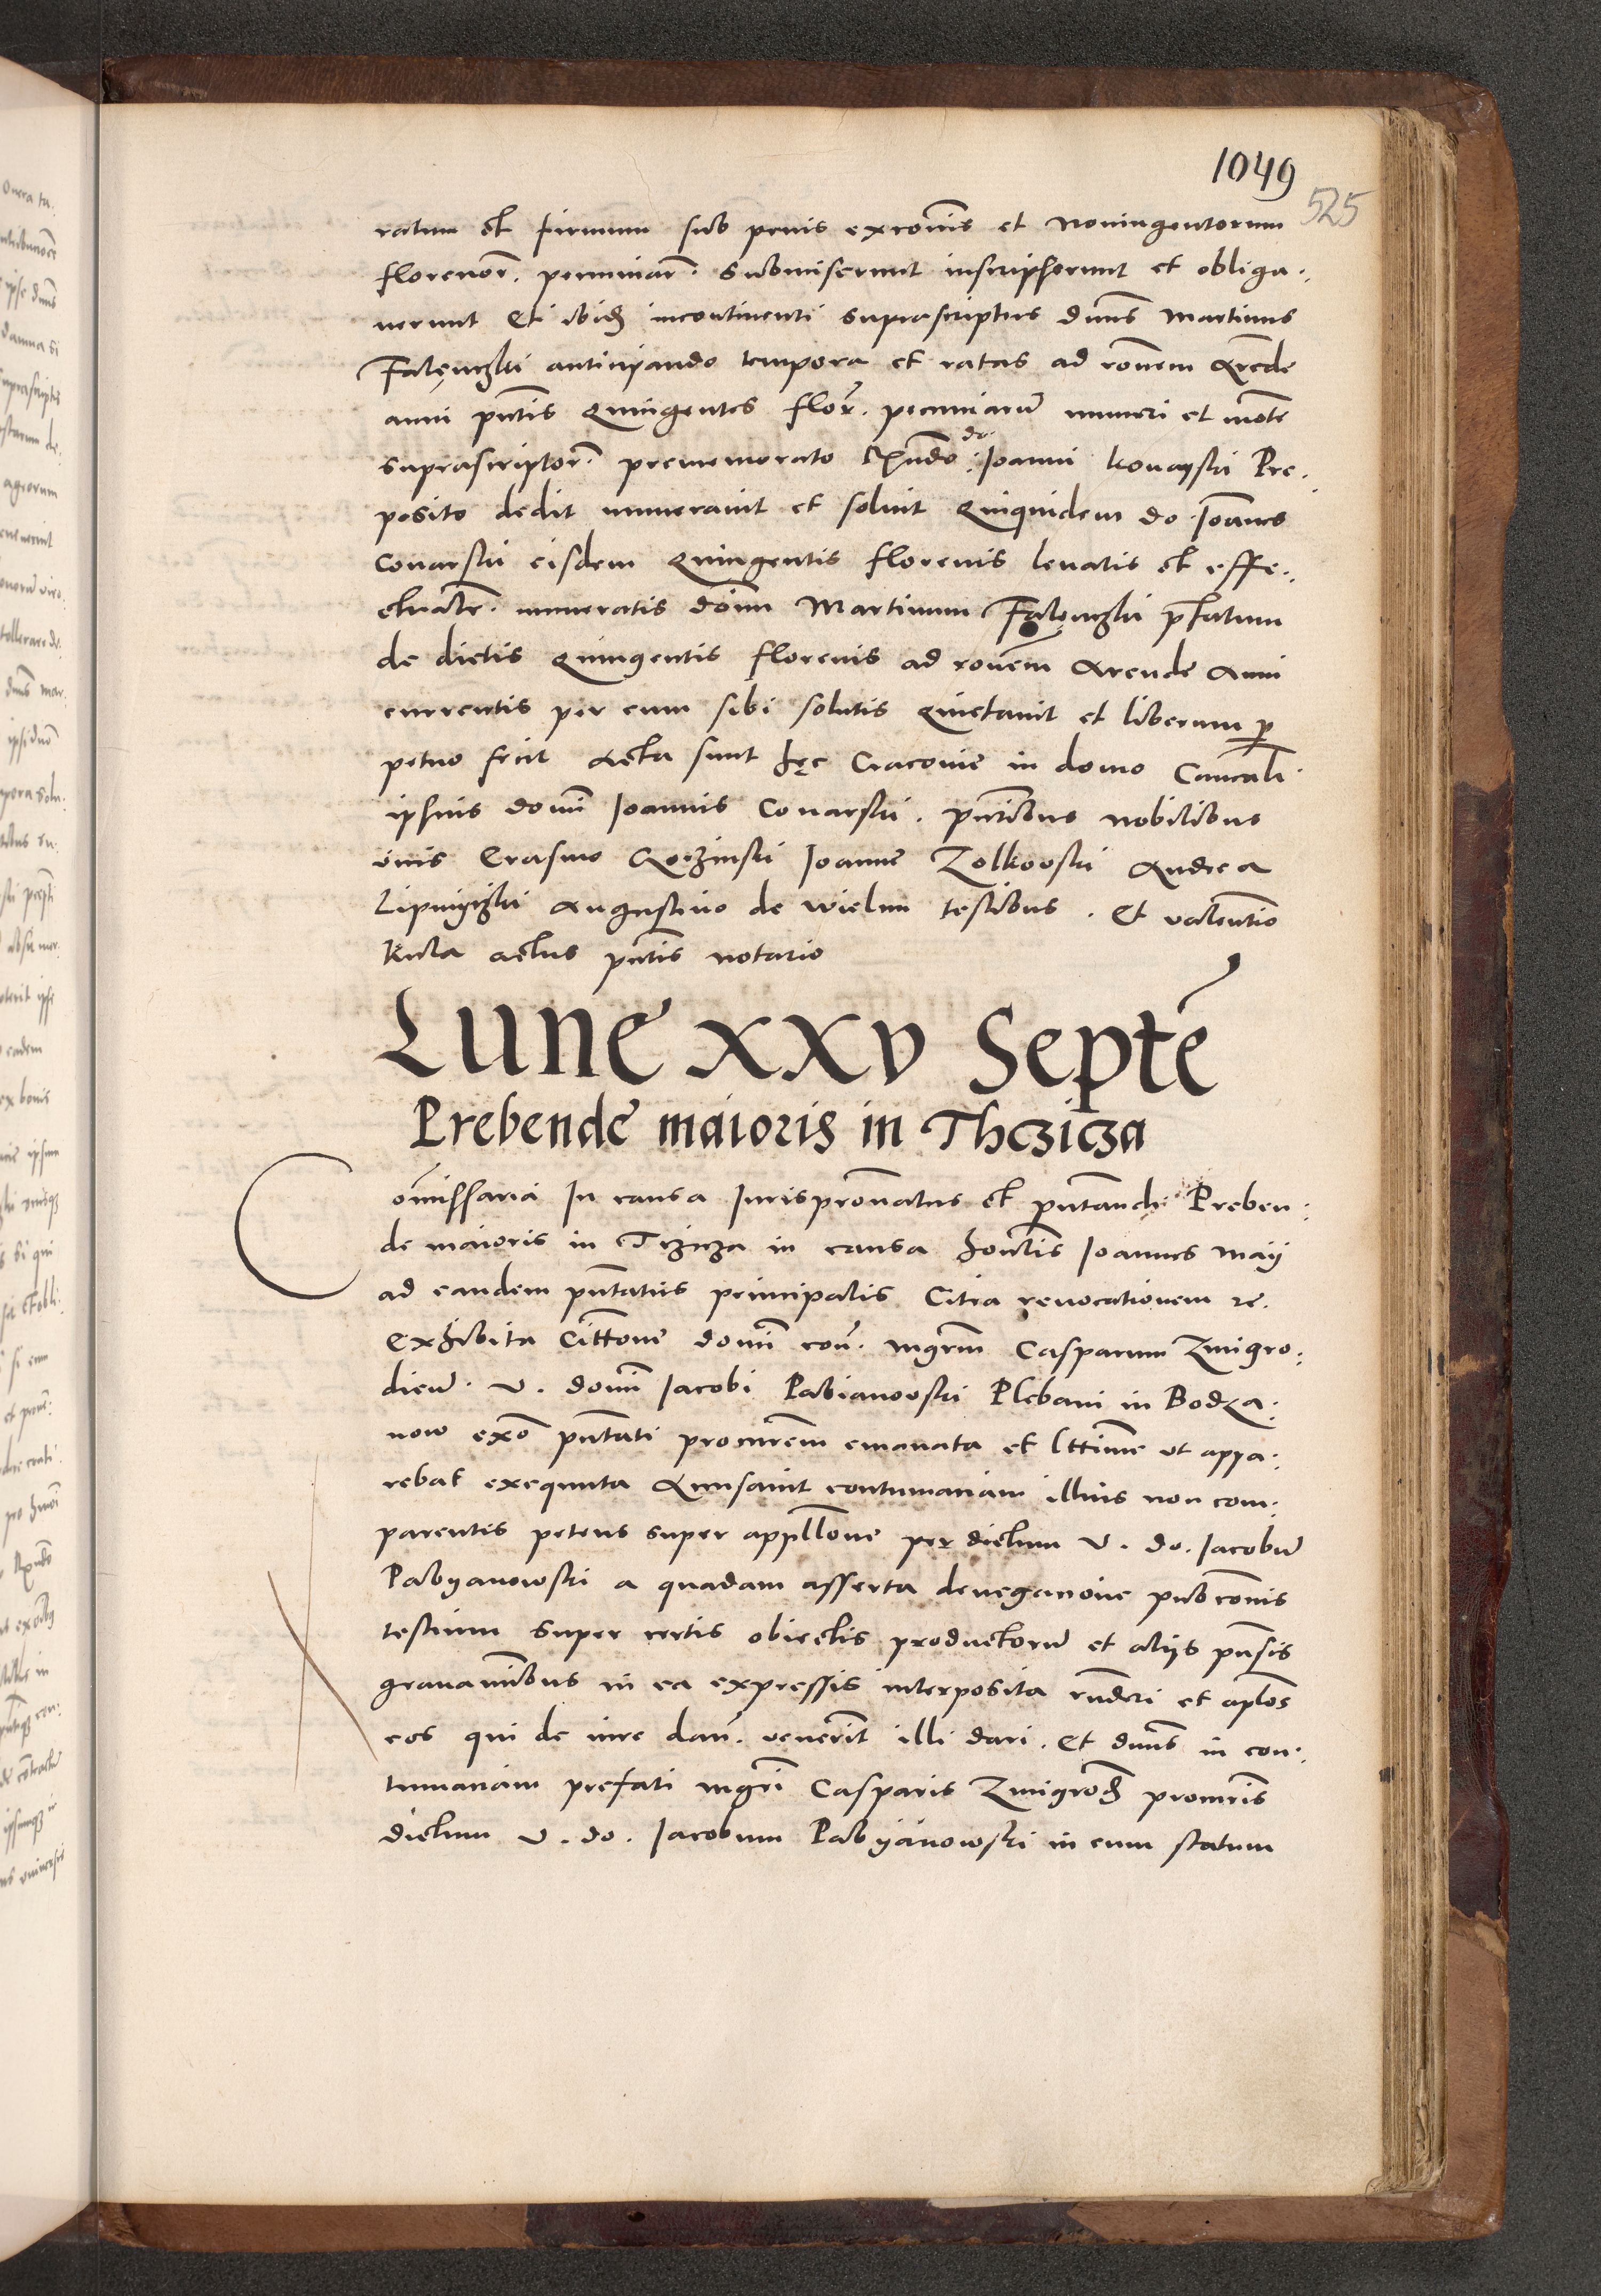 1049
525
ratum et firmum sub penis excōnis et Noningentorum
florenor. pecuniar. submiserunt inscripserunt et obliga.
verunt Et ibid incontinenti suprascriptus dnus Martinus
Falęnczki anticipando tempora et ratas ad ronem Arende
anni pntis Quingentos flor. pecuniarum numeri et monte
suprascriptor. prememorato Rndo do. Joanni konarski Pre.
posito dedit numeravit et soluit Quiquidem do Joannes
Conarski eisdem Quingentis florenis levatis et effe.
ctualr. numeratis domn Martinum Falęnczki pfatum
de dictis Quingentis florenis ad ronem Arende Anni
currentis per eum sibi solutis Quietavit et liberum p
petuo fecit Acta sunt hęc Cracovie in domo Canicali
ipsius domi Joannis Conarski. pntibus nobilibus
viris Erasmo Joanne Zolkowski Andrea
Augustino de wielun testibus. Et valentio
Kula actus pntis notario
Lune xxv Septē
Prebende maioris in Thczicza
Comissaria In causa Jurispronatus et pntandi Preben:
de maioris in in causa hontis Joannes may
ad eandem pntatus principalis Citra revocationem re.
Exhibita Cittone domi con. mgrm Casparum Zmigro:
dien. V. domi Jacobi Pabianowski Plebani in Bodza:
now exo pntati procurem emanata et lttime ut appa:
rebat exequuta Accusavit contumaciam illius non com:
parentis petens super appllone per dictum V. do. Jacobum
Pabyanowski a quadam asserta denegacione pubconis
testium super certis obiectis productorum et alijs pnsis
gravaminibus in ea expressis interposita rnderi et aplos
eos qui de iure dan. venerit illi dari. Et dnus in con.
tumaciam prefati mgri Casparis Zmigrod procuris
dictum V. do. Jacobum Pabyanowski in eum statum